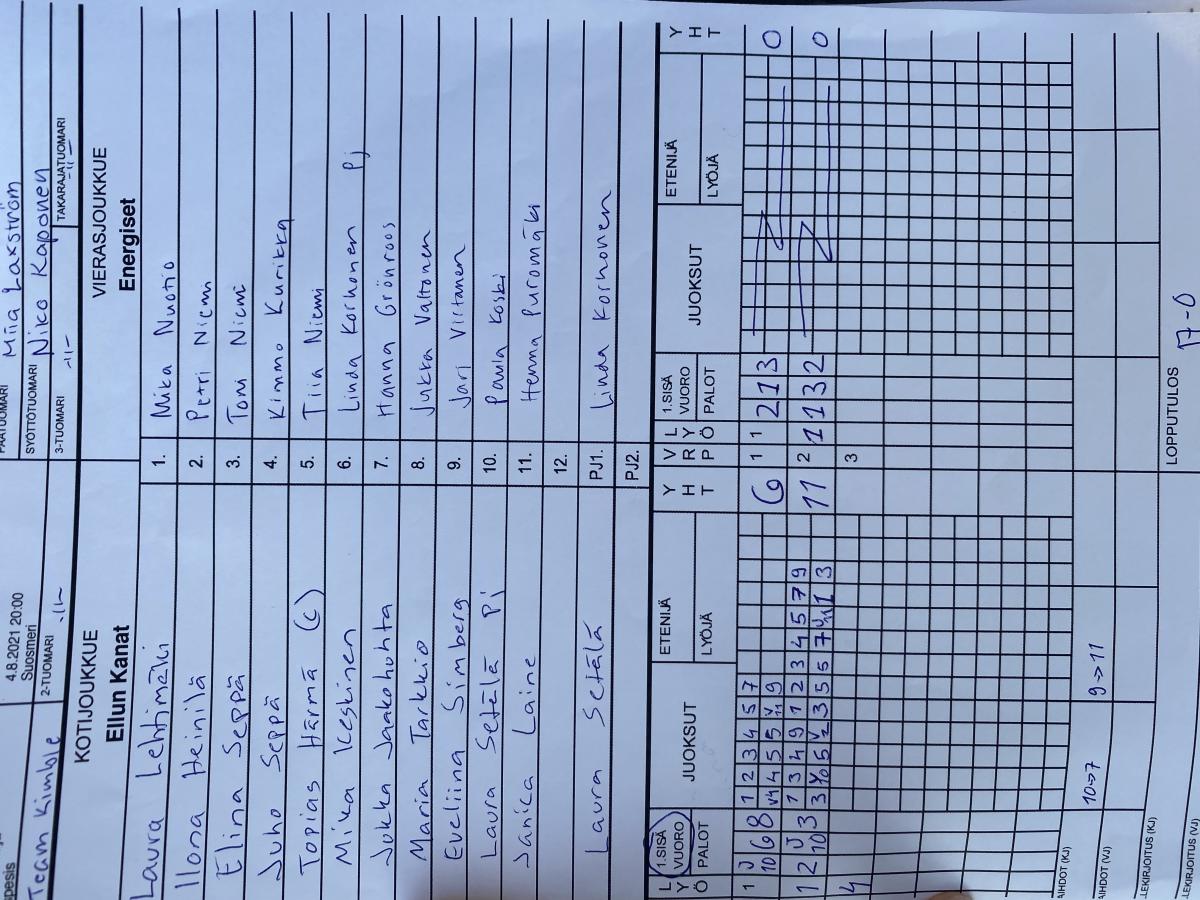 pesis
4.8.2021 20:00
Suosmeri
Miia Laxström
Team Kimble
2-TUOMARI -11-
SYÖTTÖTUOMARI Niko Kaponen
3-TUOMARI -11-
TAKARAJATUOMARI -11-
KOTIJOUKKUE
Ellun Kanat
VIERASJOUKKUE
Energiset
Laura Lehtimäki 1. Mika Nuotio
Ilona Heinilä 2. Petri Niemi
Elina Seppä 3. Toni Niemi
Juho Seppä 4. Kimmo Kurikka
Topias Härmä (c) 5. Tiia Niemi
Mika Keskinen 6. Linda Korhonen Pj
Jukka Jaakohuhta 7. Hanna Grönroos
Maria Tarkkio 8. Jukka Valtonen
Eveliina Simberg 9. Jari Virtanen
Laura Setälä Pj 10. Paula Koski
Janica Laine 11. Henna Puromäki
12.
Laura Setälä PJ1. Linda Korhonen
PJ2.
L Y Ö 1.SISÄ VUORO PALOT JUOKSUT ETENIJÄ LYÖJÄ Y H T V R P L Y Ö 1.SISÄ VUORO PALOT JUOKSUT ETENIJÄ LYÖJÄ Y H T
1 J 1 2 3 4 5 7
10 6 8 4 4 5 5 9 6 1 1 2 1 3 0
1 2 J 3 1 3 4 9 1 2 3 4 5 7 9
10 3 5 3 5 5 7 1 3 11 2 1 1 3 2 0
4 3
AIHDOT (KJ) 10->7
AIHDOT (VJ) 9->11
LEKIRJOITUS (KJ)
LEKIRJOITUS (VJ)
LOPPUTULOS 17-0